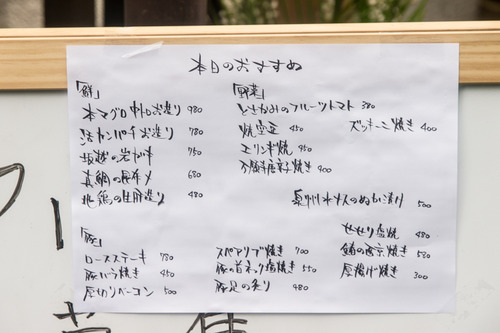 本日のおすすめ
「鮮」
本マグロ中トロお造り 980
活カンパチお造り 780
坂越の岩ガキ 750
真鯛の昆布〆 680
地鶏の生肝造り 480
「野菜」
とさかみのフルーツトマト 380
焼空豆 450
ズッキーニ焼き 400
エリンギ焼 450
万願寺唐辛子焼き 400
泉州水ナスのぬか漬け 500
「豚」
ロースステーキ 780
豚バラ焼き 450
厚切りベーコン 500
スペアリブ焼き 700
豚の首ネック塩焼き 550
豚足の炙り 480
せせり塩焼 480
鰆の西京焼き 580
厚揚げ焼き 300